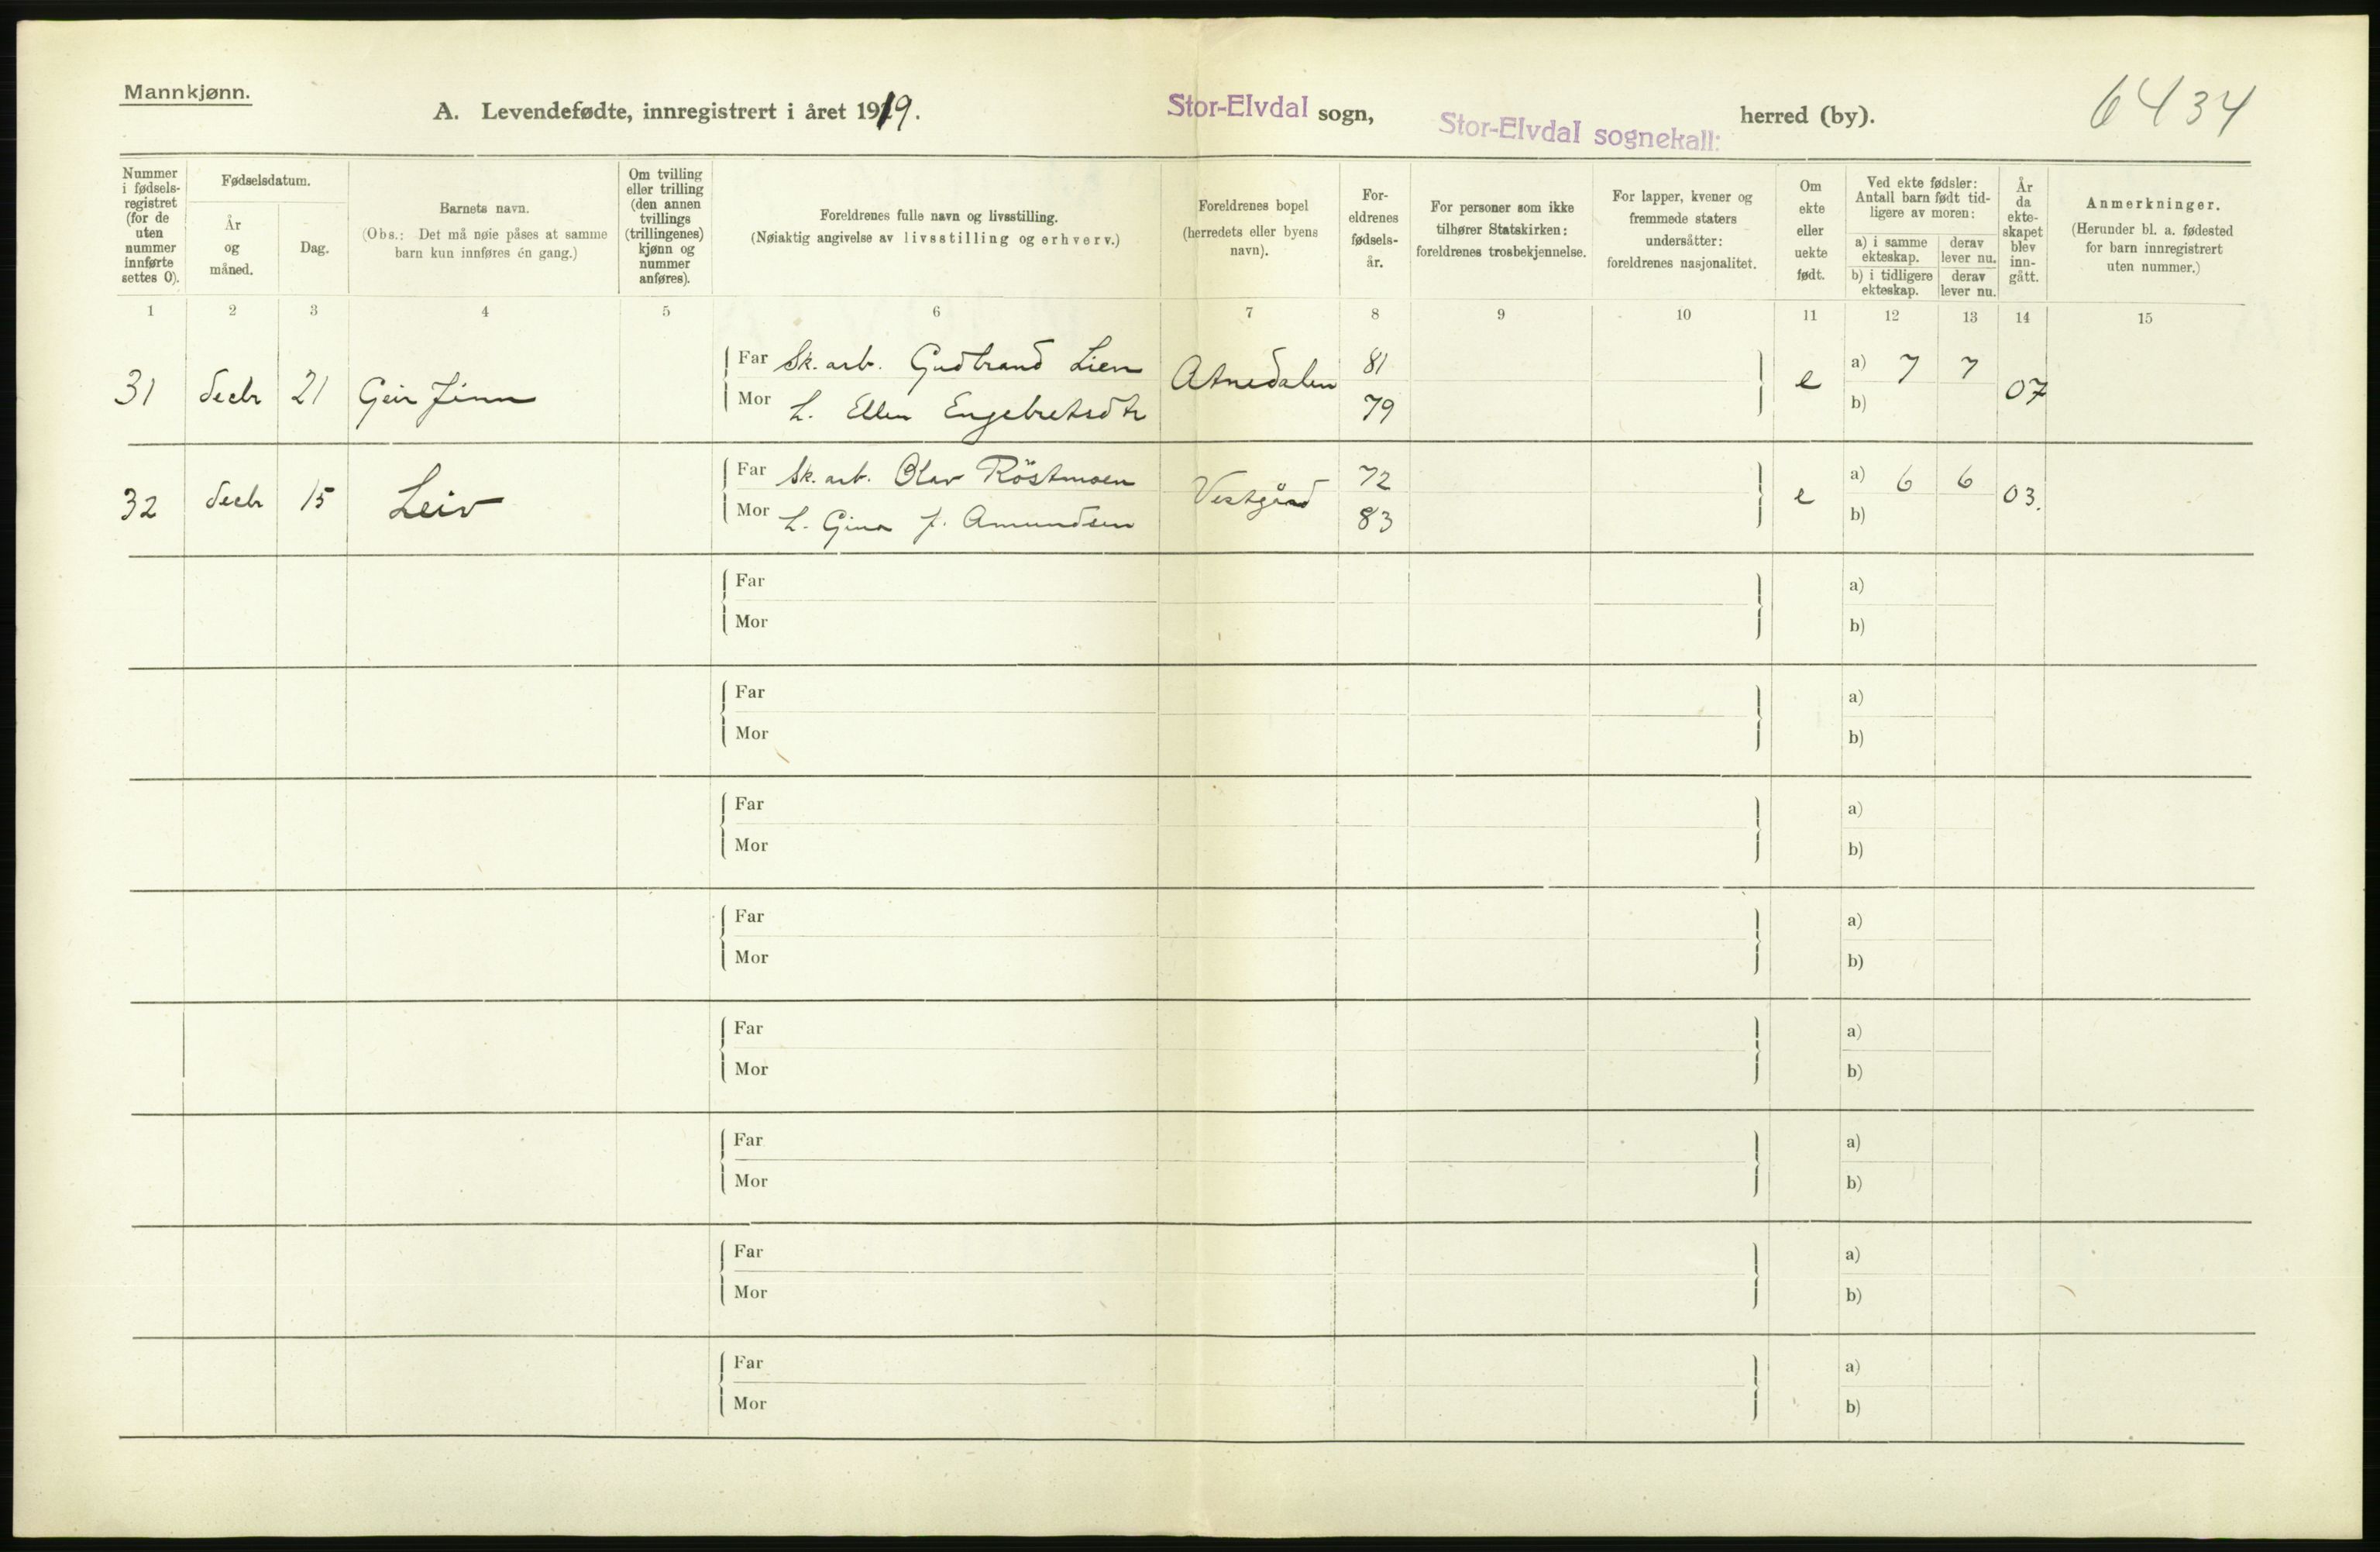 Mannkjønn.
A. Levendefødte, innregistrert i året 1919.
Stor-Elvdal sogn,
Stor-Elvdal sognekall:
herred (by).
6434
Nummer i fødsels- registret (for de uten nummer innførte settes 0).
Fødselsdatum.
År og måned.
Dag.
Barnets navn.
(Obs.: Det må nøie påses at samme barn kun innføres én gang.)
Om tvilling eller trilling (den annen tvillings (trillingenes) kjønn og nummer anføres).
Foreldrenes fulle navn og livsstilling.
(Nøiaktig angivelse av livsstilling og erhverv.)
Foreldrenes bopel (herredets eller byens navn).
For- eldrenes fødsels- år.
For personer som ikke tilhører Statskirken: foreldrenes trosbekjennelse.
For lapper, kvener og fremmede staters undersåtter: foreldrenes nasjonalitet.
Om ekte eller uekte født.
Ved ekte fødsler: Antall barn født tid- ligere av moren:
a) i samme ekteskap.
derav lever nu.
b) i tidligere ekteskap.
derav lever nu.
År da ekte- skapet blev inn- gått.
Anmerkninger.
(Herunder bl. a. fødested for barn innregistrert uten nummer.)
1 2 3 4 5 6 7 8 9 10 11 12 13 14 15
31 decbr 21 Geir Finn
Far Sk. arb. Gudbrand Lien Atnedalen 81
Mor h. Ellen Engebretsdtr 79
e a) 7 7 07
b)
32 decbr 15 Leiv
Far Sk. arb. Olav Röstmoen Vestgård 72
Mor h. Gina J. Amundsen 83
e a) 6 6 03.
b)
Far a)
Mor b)
Far a)
Mor b)
Far a)
Mor b)
Far a)
Mor b)
Far a)
Mor b)
Far a)
Mor b)
Far a)
Mor b)
Far a)
Mor b)